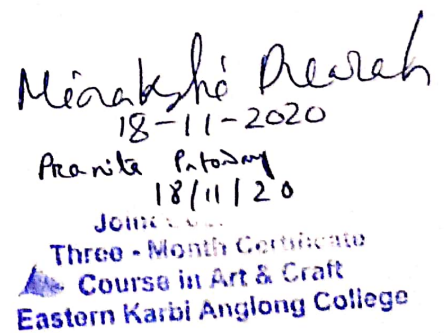 Minakshi
18-11-2020
Pranita
18/11/20
Joint
Three - Month Certificate
Course in Art & Craft
Eastern Karbi Anglong College